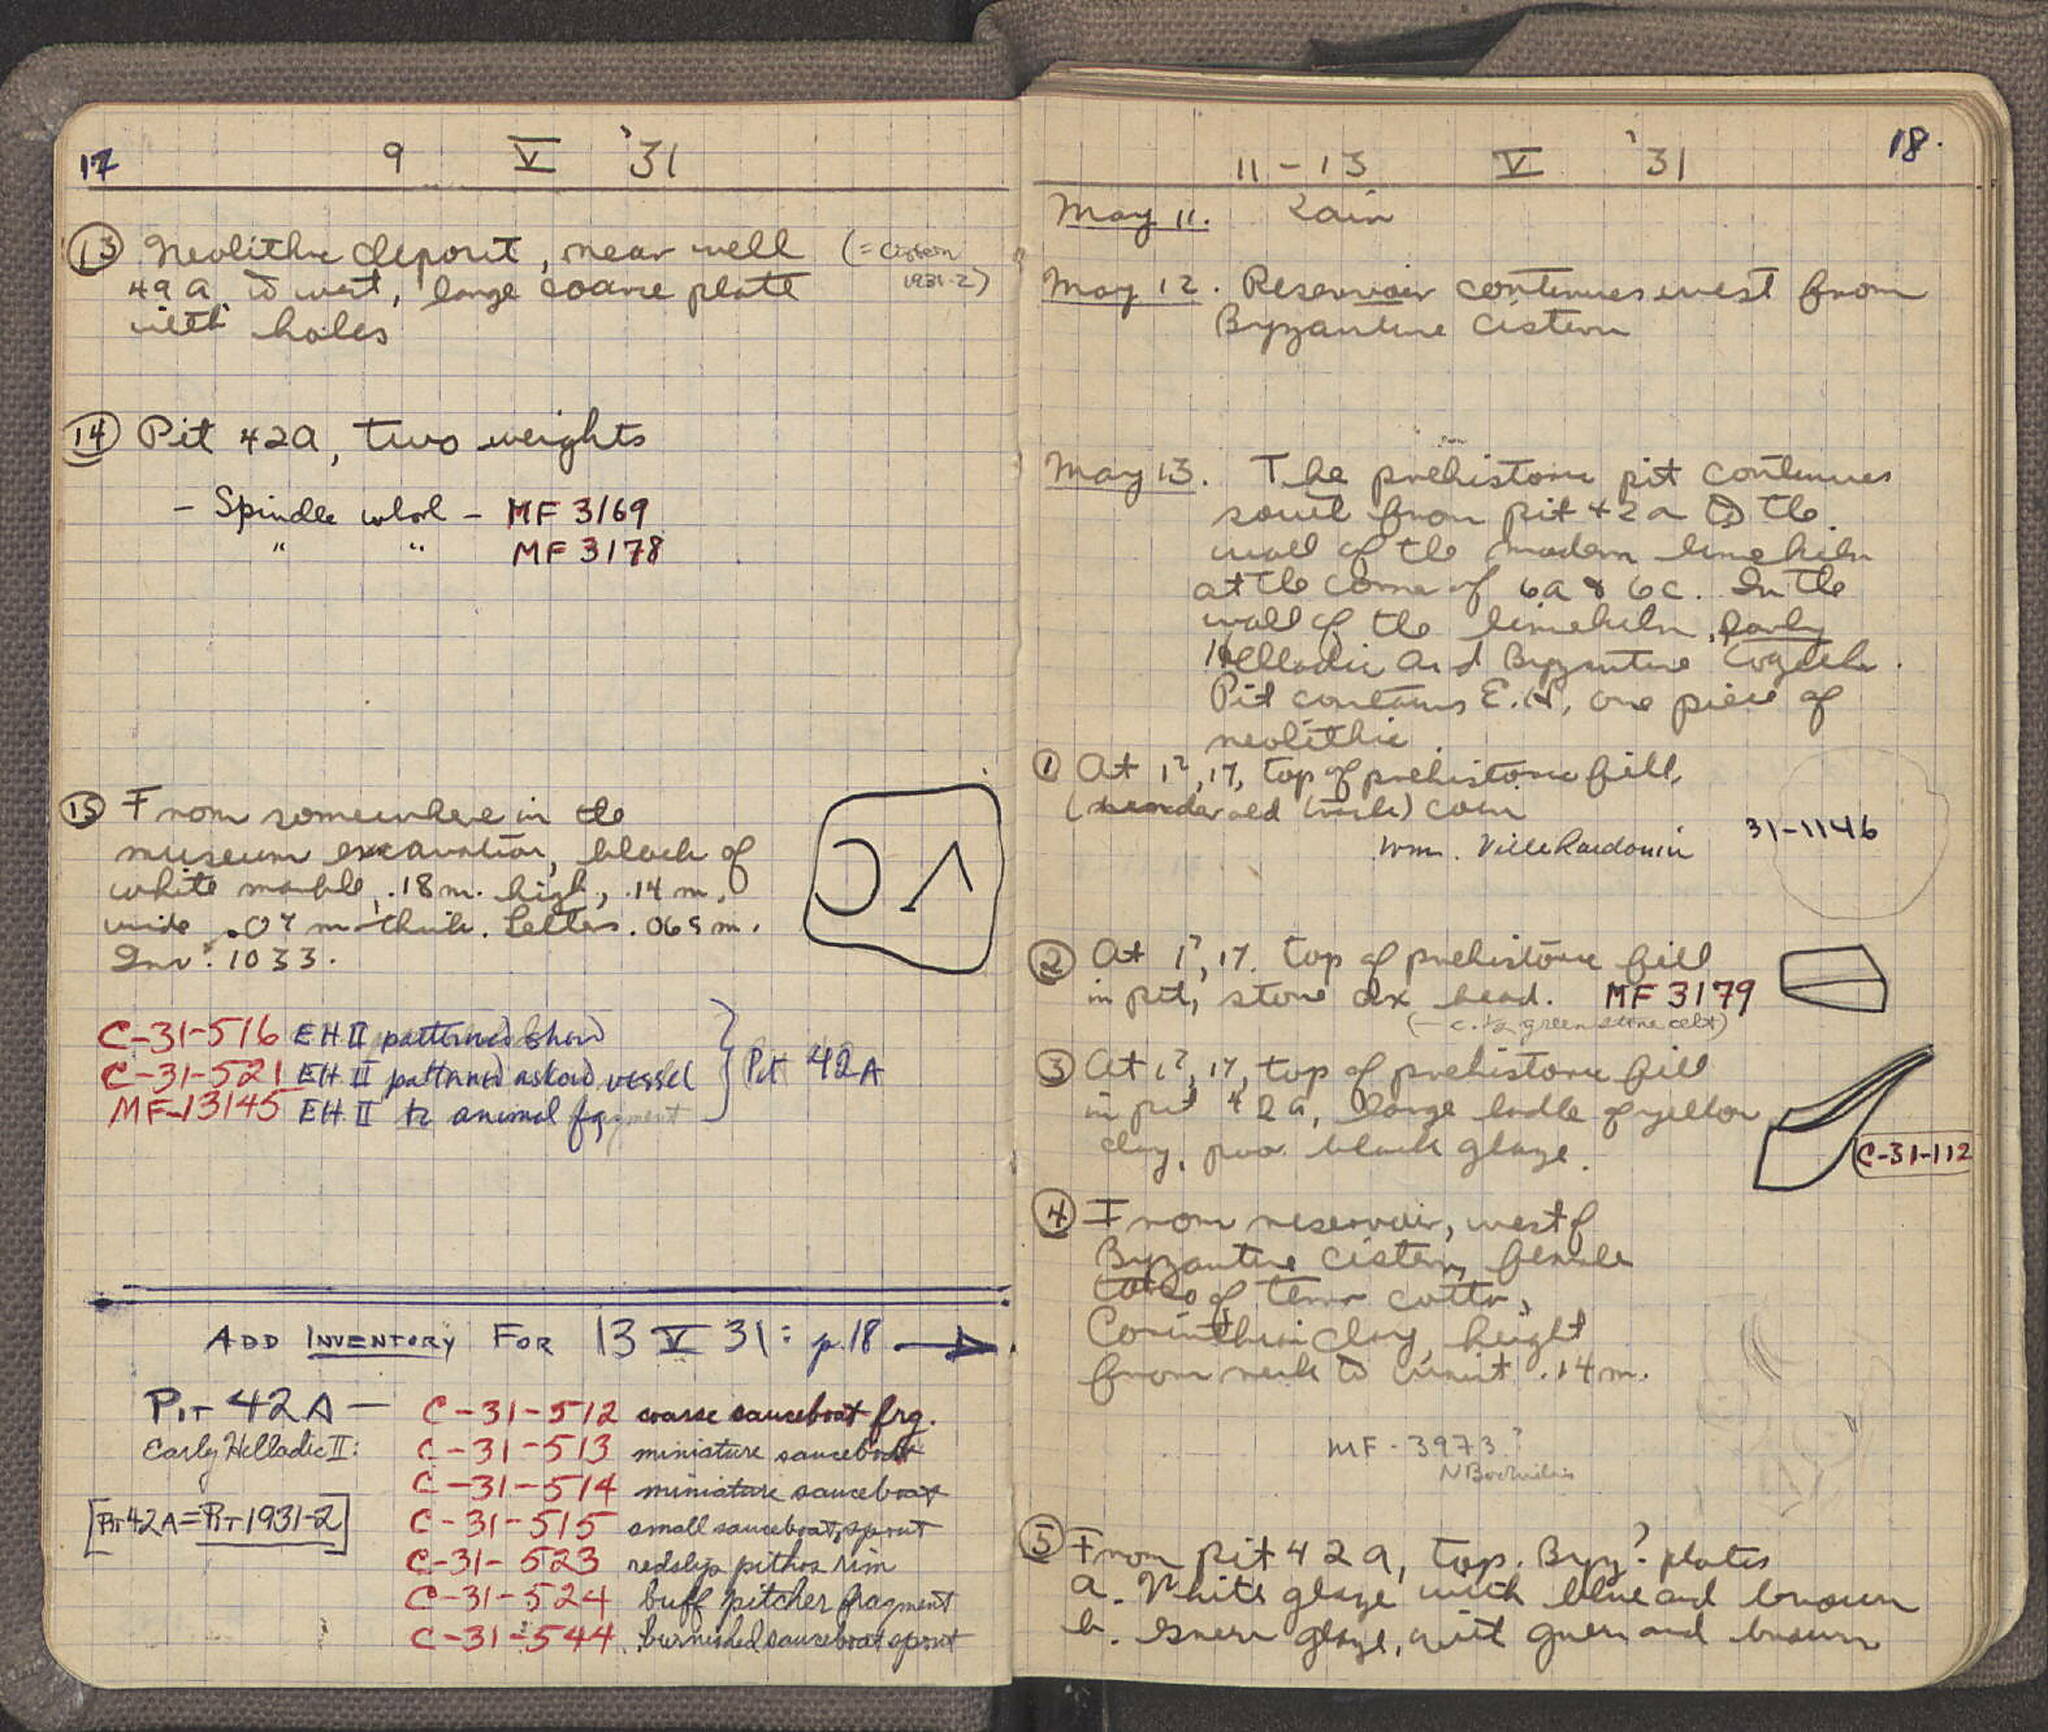 17 9 V '31
⑬ Neolithic deposit, near well (= Cistern
49 a to west, large coarse plate 1931-2)
with holes
⑭ Pit 42a, two weights
- Spindle whorl - MF 3169
" " MF 3178
⑮ From somewhere in the
museum excavation, block of
white marble, .18 m. high, .14 m.
wide .07 m thick. Letters .065 m.
Inv. 1033.
C-31-516 EH II patterned sherd
C-31-521 EH II patterned askoid vessel } Pit 42A
MF-13145 EH II tc animal fragment
ADD INVENTORY FOR 13 V 31: p. 18 →
PIT 42A — C-31-512 coarse sauceboat frg.
Early Helladic II: C-31-513 miniature sauceboat
C-31-514 miniature sauceboat
[PIT 42A = PIT 1931-2] C-31-515 small sauceboat, spout
C-31-523 redslip pithos rim
C-31-524 buff pitcher fragment
C-31-544 burnished sauceboat spout
11-13 V '31 18.
May 11. Rain
May 12. Reservoir continues west from
Byzantine cistern
May 13. The prehistoric pit continues
south from pit 42a to the
wall of the modern limekiln
at the corner of 6a & 6c. In the
wall of the limekiln, Early
Helladic and Byzantine together.
Pit contains E.H., one piece of
neolithic.
① At 1?, 17, top of prehistoric fill,
(under old truck) coin
Wm. Villehardouin 31-1146
② At 1?, 17. top of prehistoric fill
in pit, stone ax head. MF 3179
(- c. 1/2 green stone celt)
③ At 1?, 17, top of prehistoric fill
in pit 42a, large ladle of yellow
clay, poor black glaze. C-31-112
④ From reservoir, west of
Byzantine cistern, female
torso of terra cotta,
Corinthian clay, height
from neck to waist .14 m.
MF-3973?
N Bookidis
⑤ From pit 42a, top. Byz? plates
a. White glaze with blue and brown
b. Green glaze, with green and brown